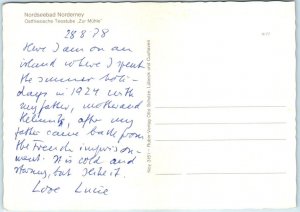 Nordseebad Norderney
Ostfriesische Teestube „Zur Mühle"
28 8 78
Here I am on an
island where I spent
the summer holi-
days in 1924 with
my father, mother and
Helmuth, after my
father came back from
the French imprison-
ment. It is cold and
stormy, but I like it.
Love Lucie